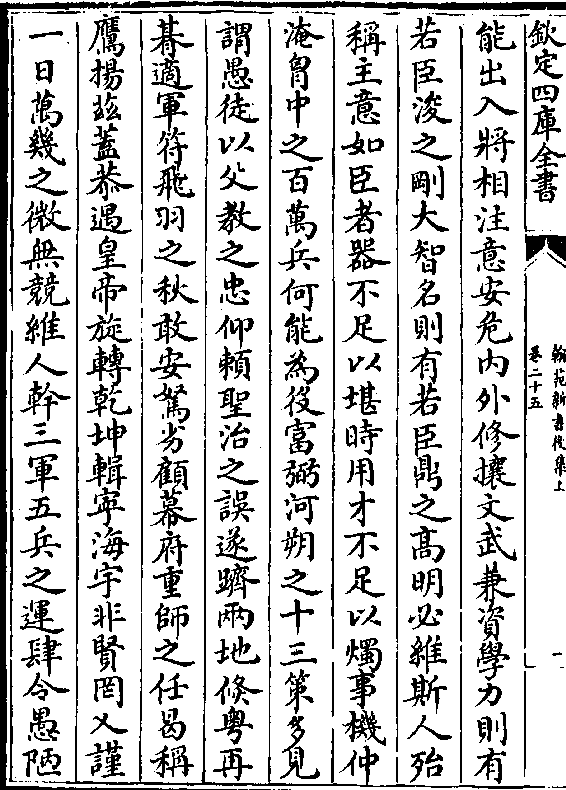 欽定四庫全書
翰苑新書後集上
卷二十五
一
能出入將相注意安危内外修攘文武兼資學力則有
若臣浚之剛大智名則有若臣鼎之高明必維斯人殆
稱主意如臣者器不足以堪時用才不足以燭事機仲
淹胷中之百萬兵何能為役富弼河朔之十三策多見
謂愚徒以父教之忠仰賴聖治之誤遂躋兩地倐粤再
朞適軍符飛羽之秋敢安駑劣顧幕府重師之任曷稱
鷹揚兹蓋恭遇皇帝旋轉乾坤輯寜海宇非賢罔乂謹
一日萬幾之微無競維人幹三軍五兵之運肆令愚陋